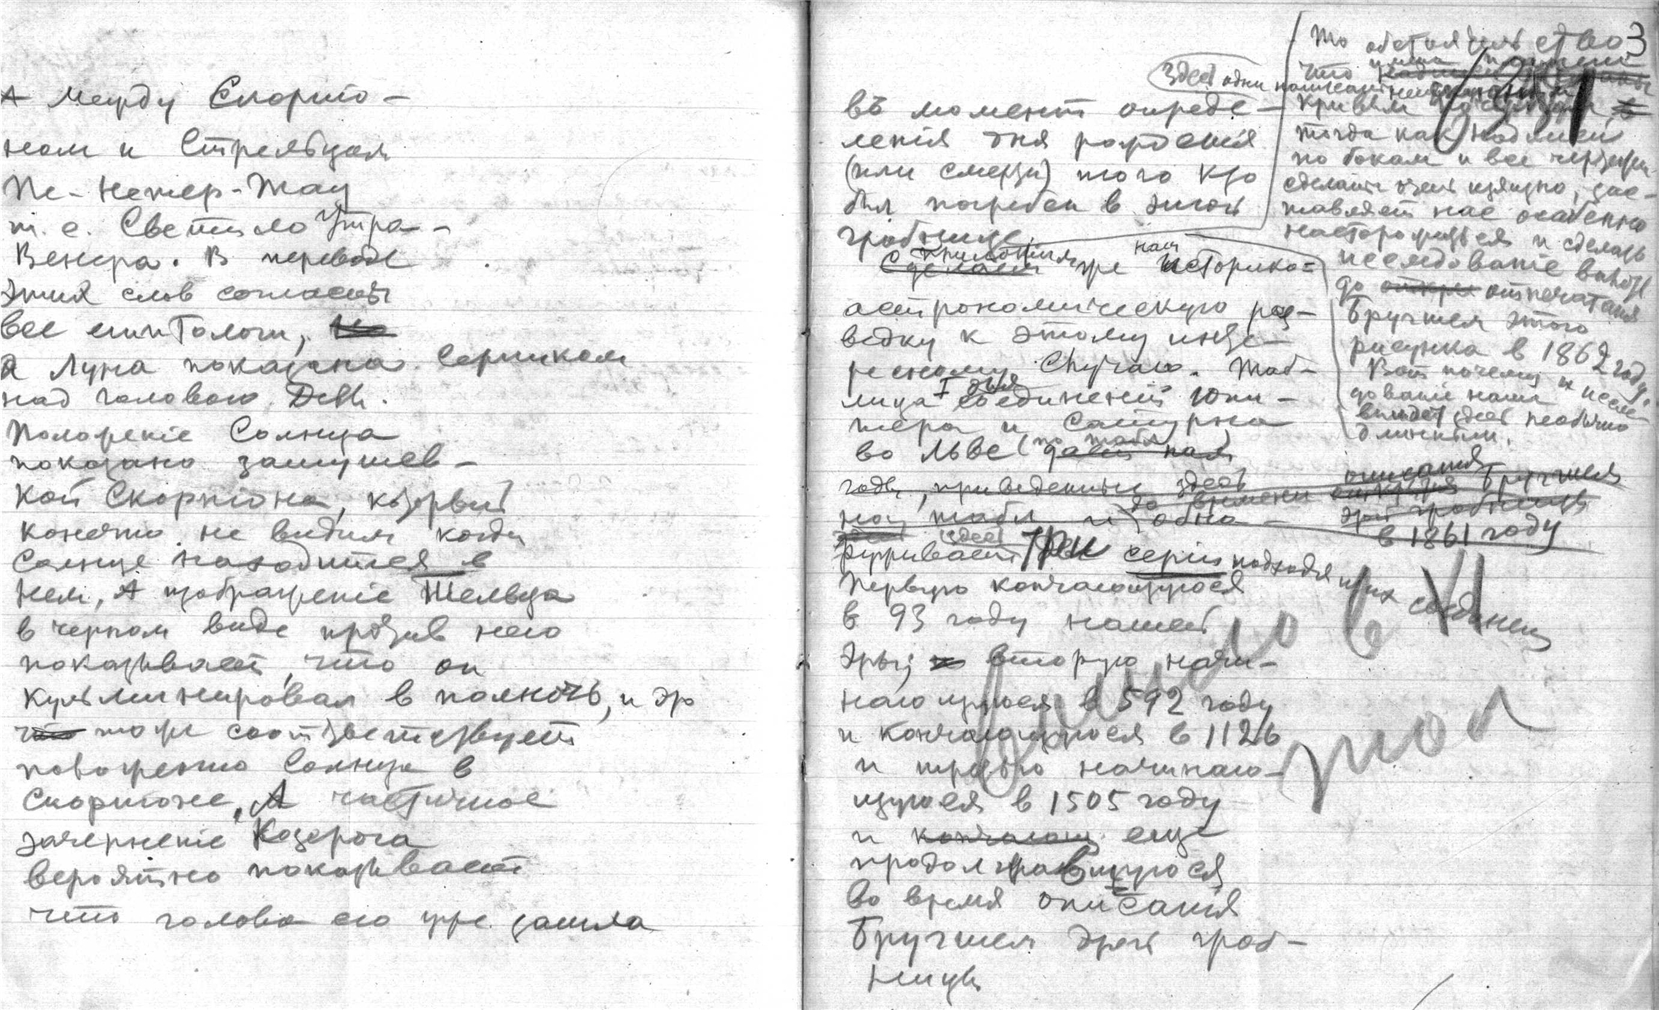 А между Скорпіо-
ном и Стрельцом
Пе-Нетер-Тау
т. е. Светило Утра -
Венера. В переводе
этих слов согласны
все египтологи,
А Луна показана серпиком
над головою Девы.
Положеніе Солнца
показано зачушев-
кой Скорпіона, который
конечно не видим когда
Солнце находится в
нем, А изображеніе Тельца
в черном виде против него
показывает, что он
кульминировал в полночь, и это
тоже соответствует
положенію Солнца в
Скорпіоне, А частичное
зачерненіе Козерога
вероятно показывает
что голова его уже зашла
въ момент опреде-
ленія дня рожденія
(или смерти) того кто
был погребен в этой
гробнице
уже историко-
астрономическую раз-
ведку к этому инте-
ресному случаю. Таб-
лица I дня соединеній Юпи-
тера и Сатурна
во Льве (по табл.
годы, приведенные здесь
на табл. и обна-
руживает здесь три серіи подходящих соединений
Первую кончающуюся
в 93 году нашей
эры, вторую начи-
нающуюся в 592 году
и кончающуюся в 1126
и третью начинаю-
щуюся в 1505 году
и кончающ. еще
продолжавшуюся
во время описанія
Бругшем этой гроб-
ницы
3
То обстоятельство
что
тогда как надписи
по бокам и все чертежи
сделаны очень изящно, зас-
тавляет нас особенно
насторожиться и сделать
исследованіе вплоть
до отпечатанія
Бругшем этого
рисунка в 1862 году.
Вот почему и иссле-
дованіе наше
выйдет здесь необычно
длинным.
до времени описанія Бругшем
этой гробницы
в 1861 году